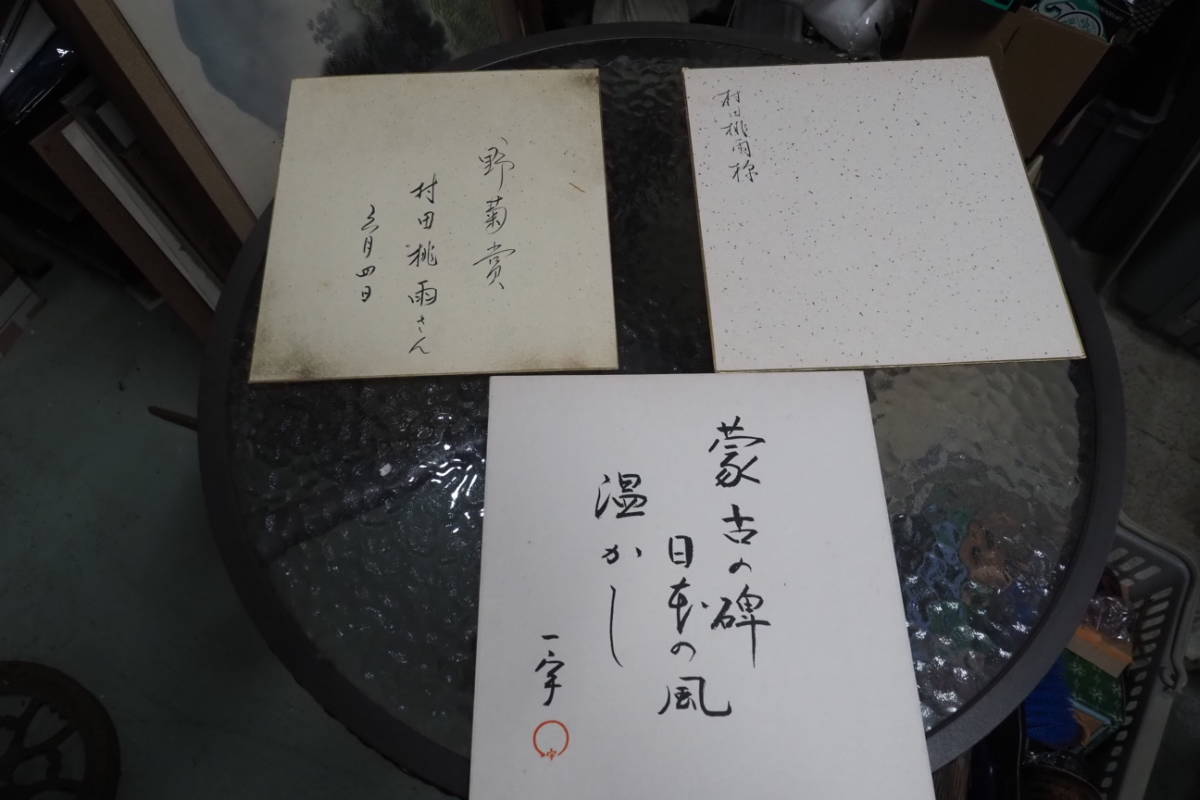 野菊賞
村田桃雨さん
六月四日
村田桃雨様
蒙古の碑
日本の風
温かし
一宇